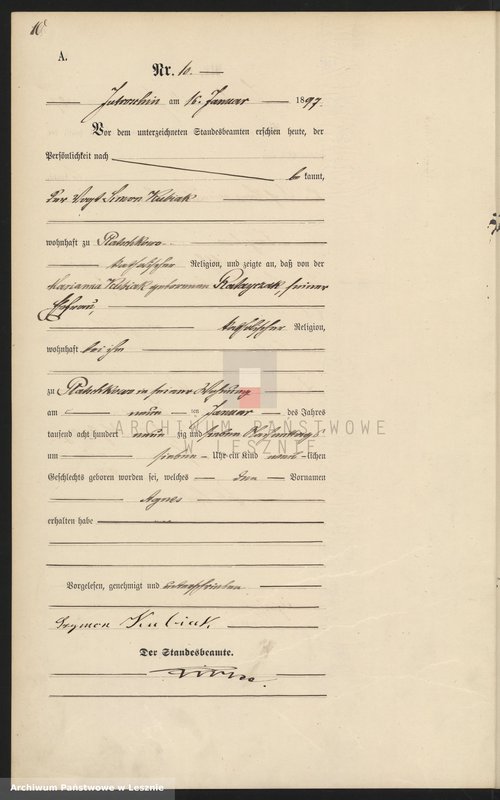 10
A.
Nr. 10.
Jutroschin am 16. Januar 1897.
Vor dem unterzeichneten Standesbeamten erschien heute, der
Persönlichkeit nach
be kannt,
der Vogt Simon Kubiak
wohnhaft zu Platschkowo
katholischer Religion, und zeigte an, daß von der
Marianna Kubiak geborenen Ratajczak, seiner
Ehefrau,
katholischer Religion,
wohnhaft bei ihm
zu Platschkowo in seiner Wohnung
am neun ten Januar des Jahres
tausend acht hundert neun zig und sieben Vormittags
um sieben Uhr ein Kind lichen
Geschlechts geboren worden sei, welches den Vornamen
Agnes
erhalten habe
Vorgelesen, genehmigt und unterschrieben
Szymon Kubiak
Der Standesbeamte.
ARCHIWUM PAŃSTWOWE
W LESZNIE
Archiwum Państwowe w Lesznie